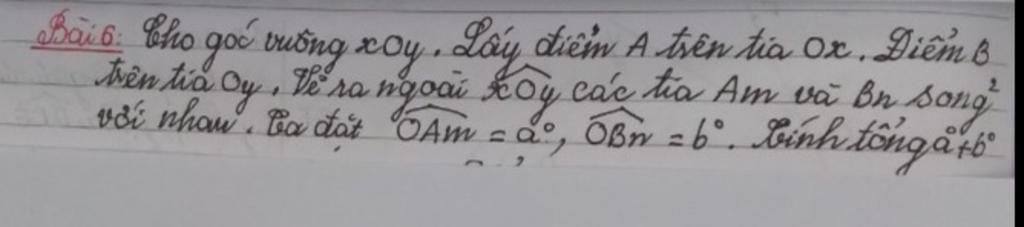 Bài 6: Cho góc vuông xOy. Lấy điểm A trên tia Ox. Điểm B
trên tia Oy. Vẽ ra ngoài xOy các tia Am và Bn song²
với nhau. Ta đặt OAm = a°, OBn = b°. Tính tổng a°+b°